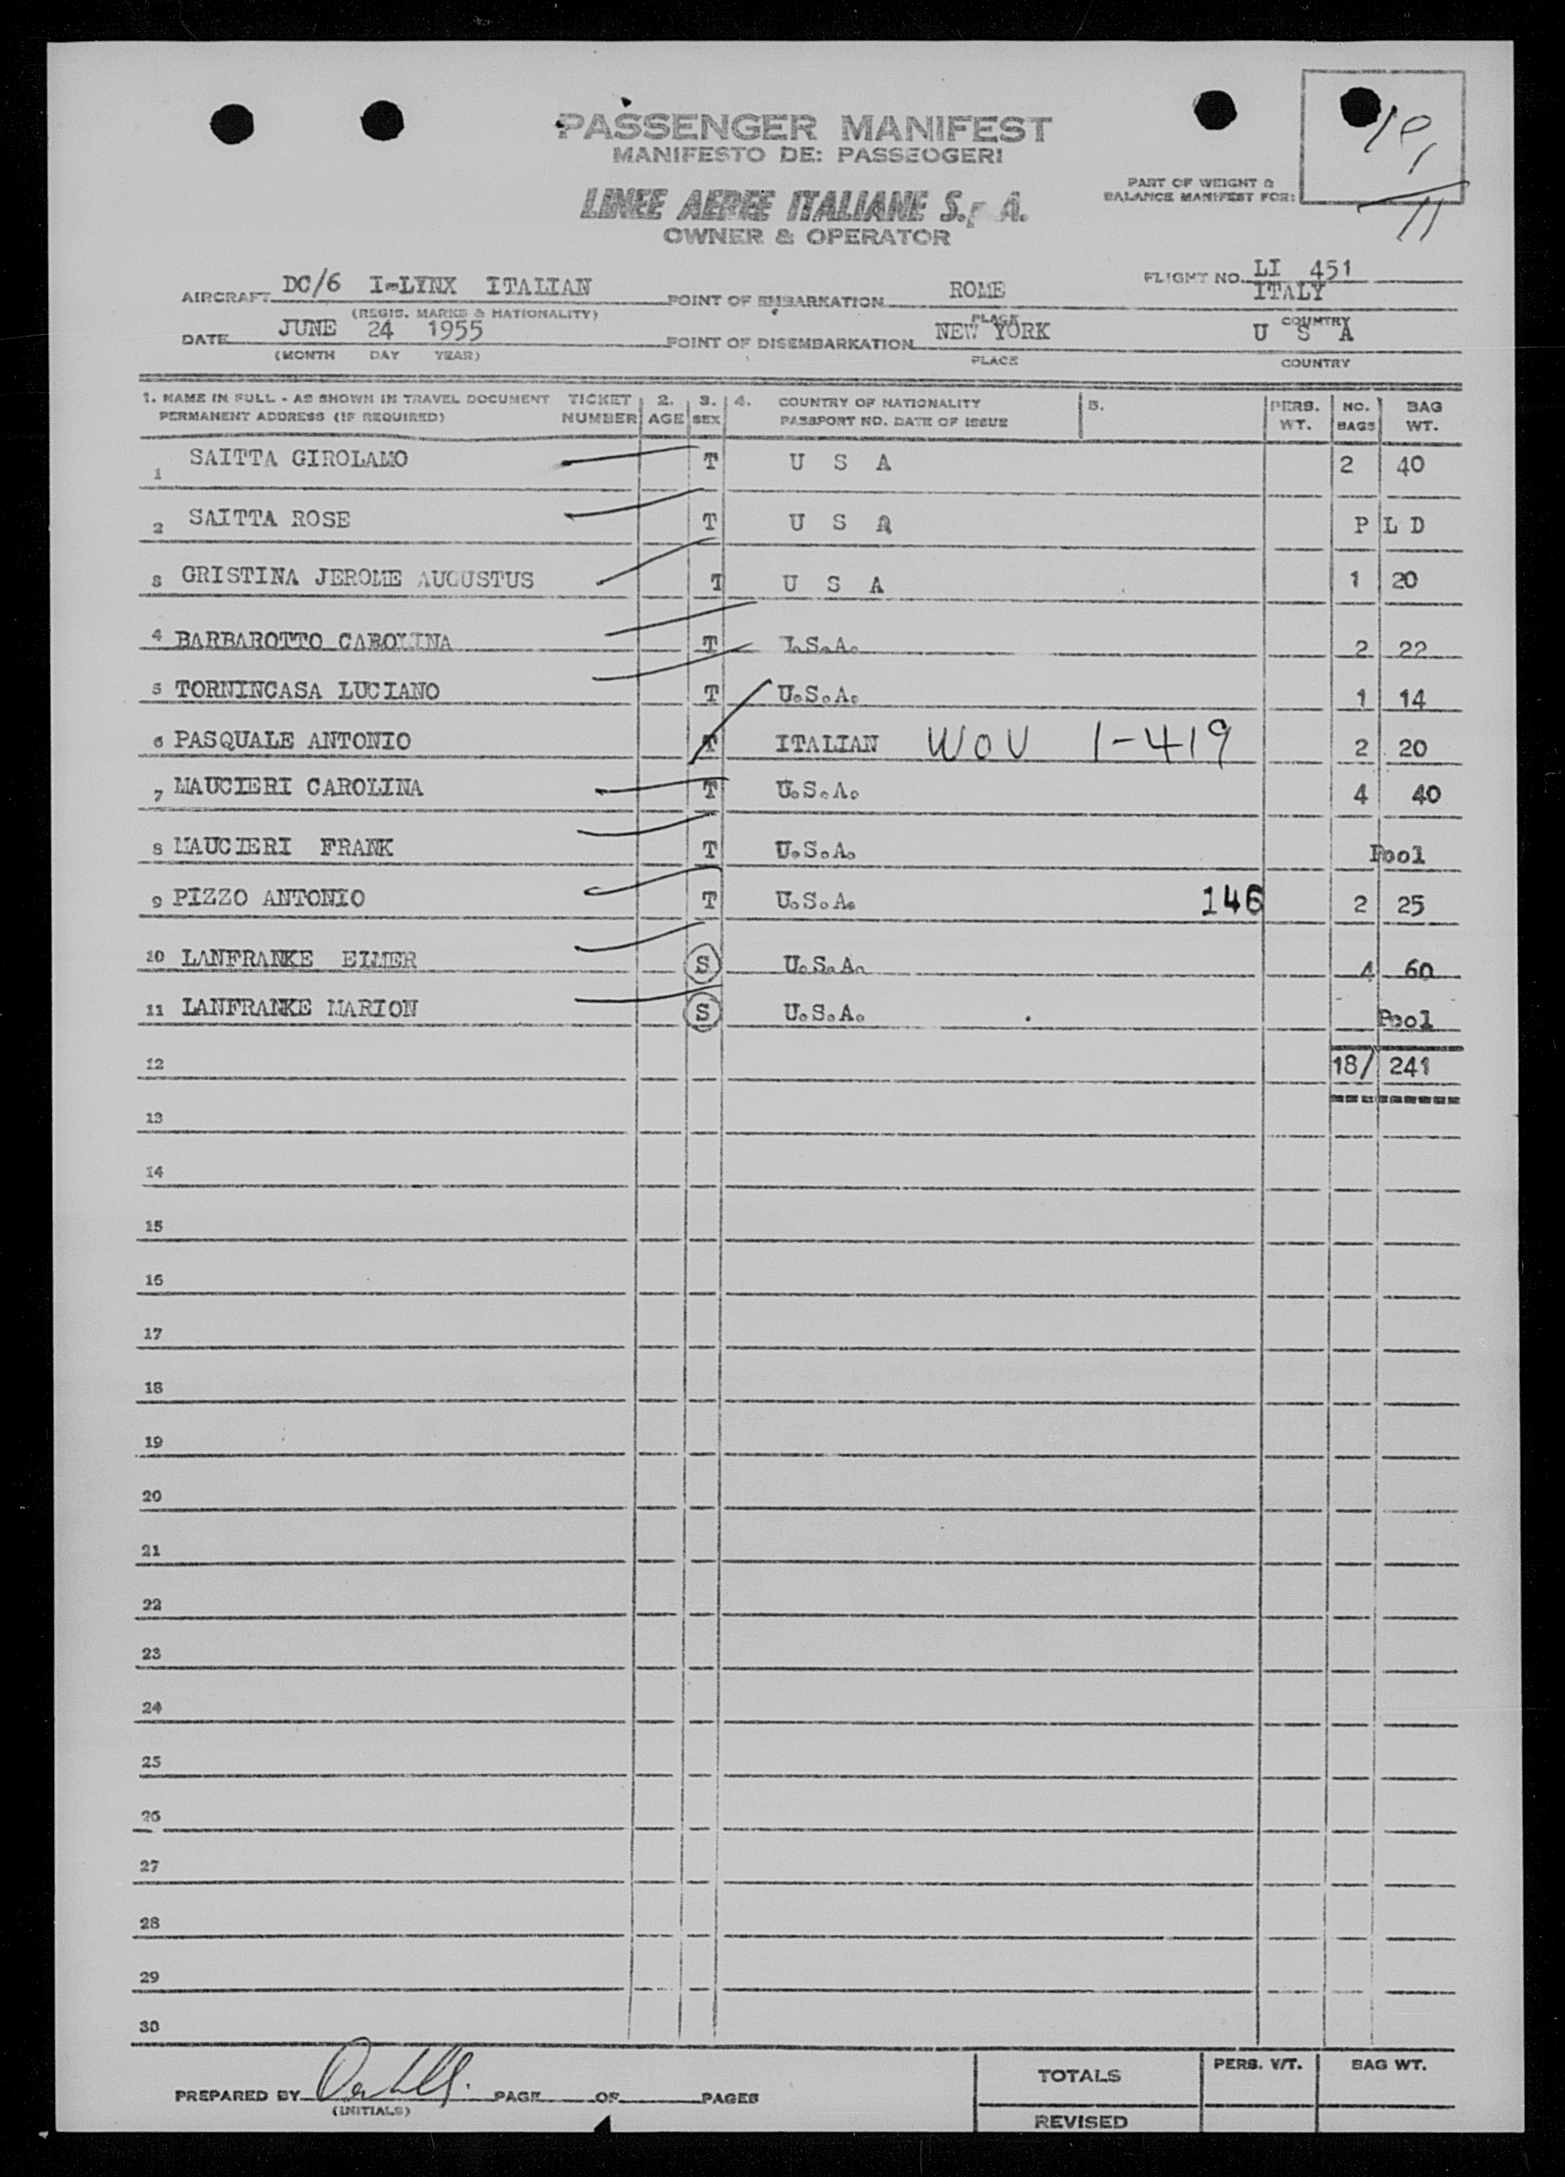 PASSENGER MANIFEST
MANIFESTO DE: PASSEOGERI
LINEE AEREE ITALIANE S.p A.
OWNER & OPERATOR
PART OF WEIGHT &
BALANCE MANIFEST FOR:
11
AIRCRAFT DC/6 I-LYNX ITALIAN
(REGIS. MARKS & NATIONALITY)
POINT OF EMBARKATION ROME
PLACE
FLIGHT NO. LI 451
ITALY
COUNTRY
DATE JUNE 24 1955
(MONTH DAY YEAR)
POINT OF DISEMBARKATION NEW YORK
PLACE
U S A
COUNTRY
1. NAME IN FULL - AS SHOWN IN TRAVEL DOCUMENT TICKET 2. 3. 4. COUNTRY OF NATIONALITY 5. PERS. NO. BAG
PERMANENT ADDRESS (IF REQUIRED) NUMBER AGE SEX PASSPORT NO. DATE OF ISSUE WT. BAGS WT.
1 SAITTA GIROLAMO T U S A 2 40
2 SAITTA ROSE T U S A P L D
3 GRISTINA JEROME AUGUSTUS T U S A 1 20
4 BARBAROTTO CAROLINA T U.S.A. 2 22
5 TORNINCASA LUCIANO T U.S.A. 1 14
6 PASQUALE ANTONIO T ITALIAN WOU 1-419 2 20
7 MAUCIERI CAROLINA T U.S.A. 4 40
8 MAUCIERI FRANK T U.S.A. Pool
9 PIZZO ANTONIO T U.S.A. 146 2 25
10 LANFRANKE ELMER S U.S.A. 4 60
11 LANFRANKE MARION S U.S.A. Pool
12 18/ 241
13
14
15
16
17
18
19
20
21
22
23
24
25
26
27
28
29
30
PREPARED BY PAGE OF PAGES
(INITIALS)
TOTALS PERS. WT. BAG WT.
REVISED